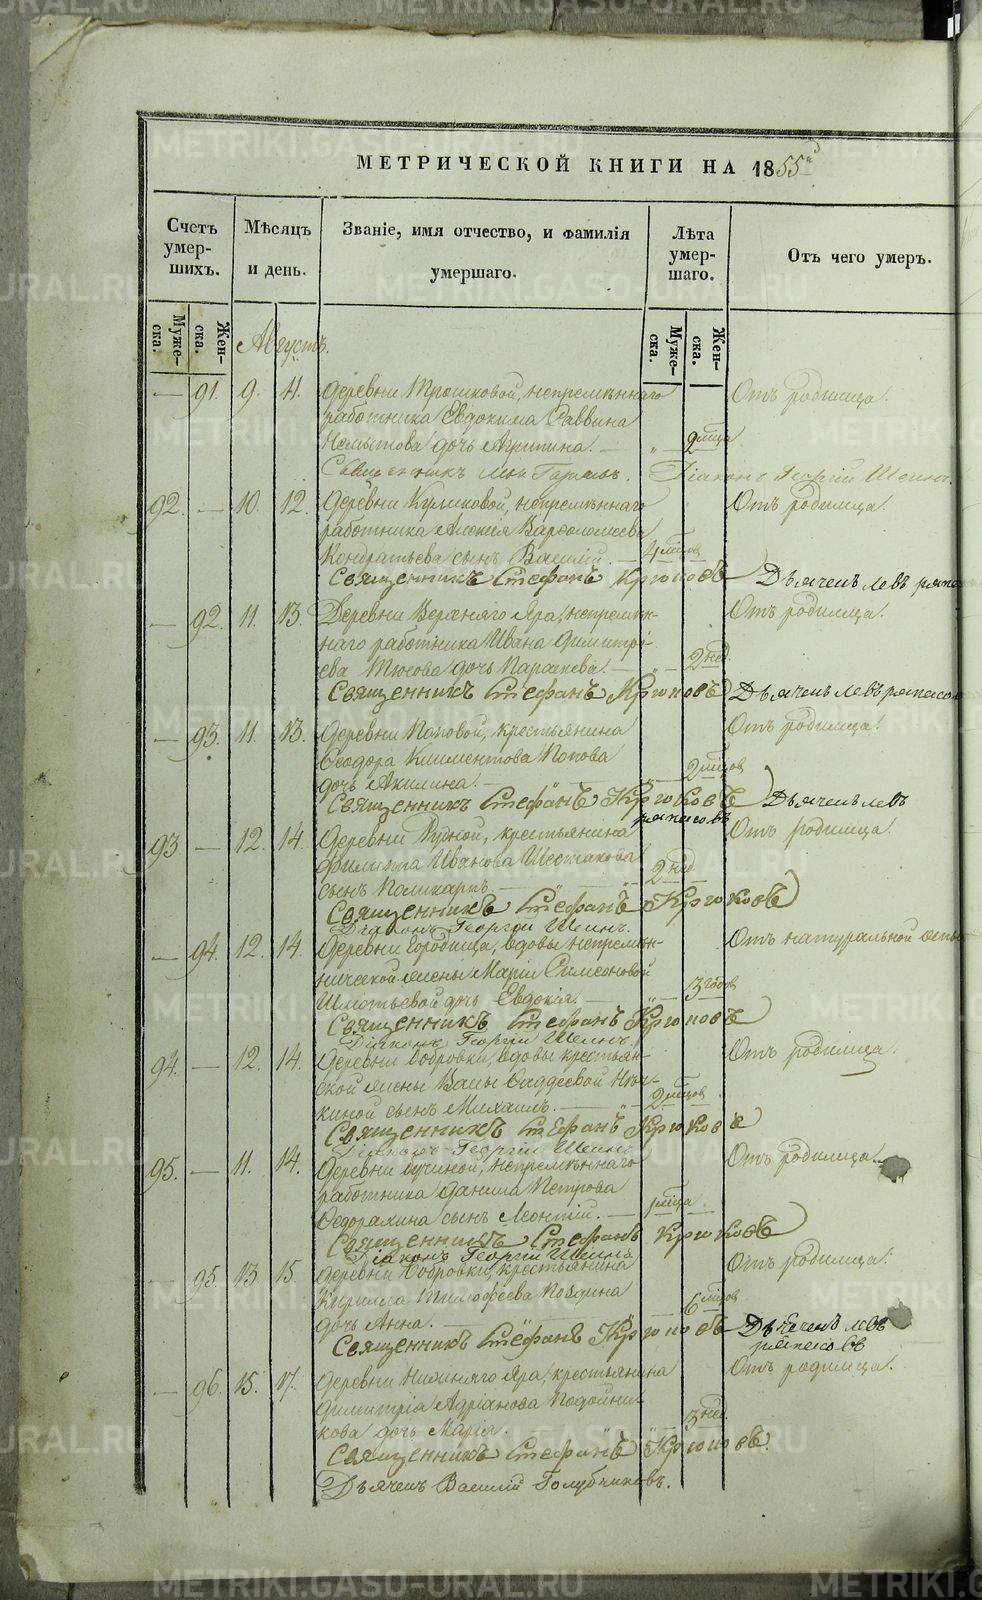 МЕТРИЧЕСКОЙ КНИГИ НА 1855
Счетъ умер-шихъ. Мѣсяцъ и день. Званіе, имя отчество, и фамилія умершаго. Лѣта умер-шаго. Отъ чего умеръ.
Муже-ска. Жен-ска. Муже-ска. Жен-ска.
Августъ.
— 91. 9. 11. Деревни Трошковой, непремѣннаго Отъ родимца.
работника Евдокима Саввина
дочь Агрипина. — 2 мѣца
Священникъ Діаконъ Георгій Шеинъ.
92. — 10. 12. Деревни Куликовой, непремѣннаго Отъ родимца.
работника Алексія Варѳоломеева
Кондратьева сынъ Василій. — 4 мѣсцов
Священникъ Стефанъ Крюковъ Дьячекъ Левъ
— 92. 11. 13. Деревни Верхняго Яра, непремѣн- Отъ родимца.
наго работника Ивана Димитрі-
ева Тюсова дочь Параскева. — 2 нед.
Священникъ Стефанъ Крюковъ Дьячекъ Левъ
— 93. 11. 13. Деревни Поповой, крестьянина Отъ родимца.
Ѳеодора Климентова Попова
дочь Акилина. — 2 мѣсцов
Священникъ Стефанъ Крюковъ Дьячекъ Левъ
93. — 12. 14. Деревни Рудной, крестьянина Отъ родимца.
Филиппа Иванова Шестакова
сынъ Поликарпъ. — 2 нед.
Священникъ Стефанъ Крюковъ
Діаконъ Георгій Шеинъ.
— 94. 12. 14. Деревни Городища, вдовы непремѣн- Отъ натуральной оспы
нической жены Маріи Симеоновой
дочь Евдокія. — 3 годов
Священникъ Стефанъ Крюковъ
Діаконъ Георгій Шеинъ.
94. — 12. 14. Деревни Бобровки, вдовы крестьян- Отъ родимца.
ской жены Ѳаддеевой
киной сынъ Михаилъ. — 2 мѣсцов
Священникъ Стефанъ Крюковъ
Діаконъ Георгій Шеинъ
95. — 11. 14. Деревни непремѣннаго Отъ родимца.
работника Данила Петрова
Ѳедорахина сынъ Леонтій. — 1 мѣца
Священникъ Стефанъ Крюковъ
Діаконъ Георгій Шеинъ
— 95. 13. 15. Деревни Бобровки, крестьянина Отъ родимца.
Кирилла Тимофеева
дочь Анна. — 6 мѣсцов
Священникъ Стефанъ Крюковъ Дьячекъ Левъ
— 96. 15. 17. Деревни Нижняго Яра, крестьянина Отъ родимца.
Димитрія Адріанова Подойни-
кова дочь Марія. — 3 нед.
Священникъ Стефанъ Крюковъ.
Дьячекъ Василій Голубчиковъ.
METRIKI.GASO-URAL.RU